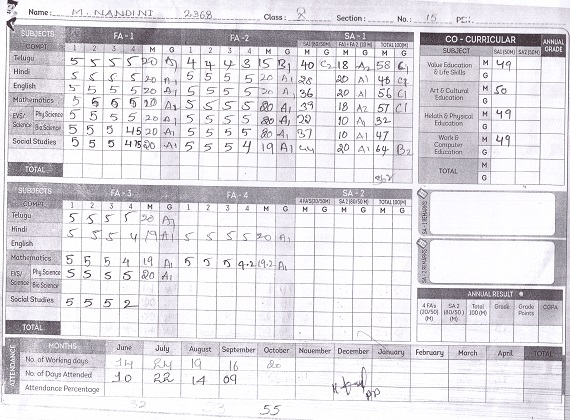 Name: M. NANDINI 2368 Class: 8 Section: No.: 15
SUBJECTS FA - 1 FA - 2 SA - 1
COMPT. 1 2 3 4 M G 1 2 3 4 M G SA1 (80/50M) FA1 - FA2 (20 M) TOTAL 100(M)
M G M G M G
Telugu 5 5 5 5 20 A1 4 4 4 3 15 B1 40 C2 18 A2 58 C1
Hindi 5 5 5 5 20 A1 5 5 5 5 20 A1 28 20 A1 48 C2
English 5 5 5 5 20 A1 5 5 5 5 20 A1 36 20 A1 56 C1
Mathematics 5 5 5 5 20 A1 5 5 5 5 20 A1 39 18 A2 57 C1
EVS/ Science Phy Science 5 5 5 5 20 A1 5 5 5 5 20 A1 22 10 A1 32
Bio Science 5 5 5 4.5 20 A1 5 5 5 5 20 A1 37 10 A1 47
Social Studies 5 5 5 4.75 20 A1 5 5 5 4 19 A1 44 20 A1 64 B2
TOTAL
CO - CURRICULAR
SUBJECT SA1 (50M) SA2 (50M) ANNUAL GRADE
Value Education & Life Skills M 49
G
Art & Cultural Education M 50
G
Helath & Physical Education M 49
G
Work & Computer Education M 49
G
TOTAL M
G
SUBJECTS FA - 3 FA - 4 SA - 2
COMPT. 1 2 3 4 M G 1 2 3 4 M G 4 FA'S (20/50M) SA 2 (80/50 M) TOTAL 100(M)
M G M G M G
Telugu 5 5 5 5 20 A1
Hindi 5 5 5 4 19 A1 5 5 5 5 20 A1
English
Mathematics 5 5 5 4 19 A1 5 5 5 4.2 19.2 A1
EVS/ Science Phy Science 5 5 5 5 20 A1
Bio Science
Social Studies 5 5 5 2
TOTAL
SA - 1 REMARKS
SA - 2 REMARKS
ANNUAL RESULT
4 FA's (20/50) (M) SA 2 (80/50) (M) Total 100 (M) Grade Grade Points CGPA
ATTENDANCE
MONTHS June July August September October November December January February March April TOTAL
No. of Working days 14 24 19 16 20
No. of Days Attended 10 22 14 09
Attendance Percentage
55